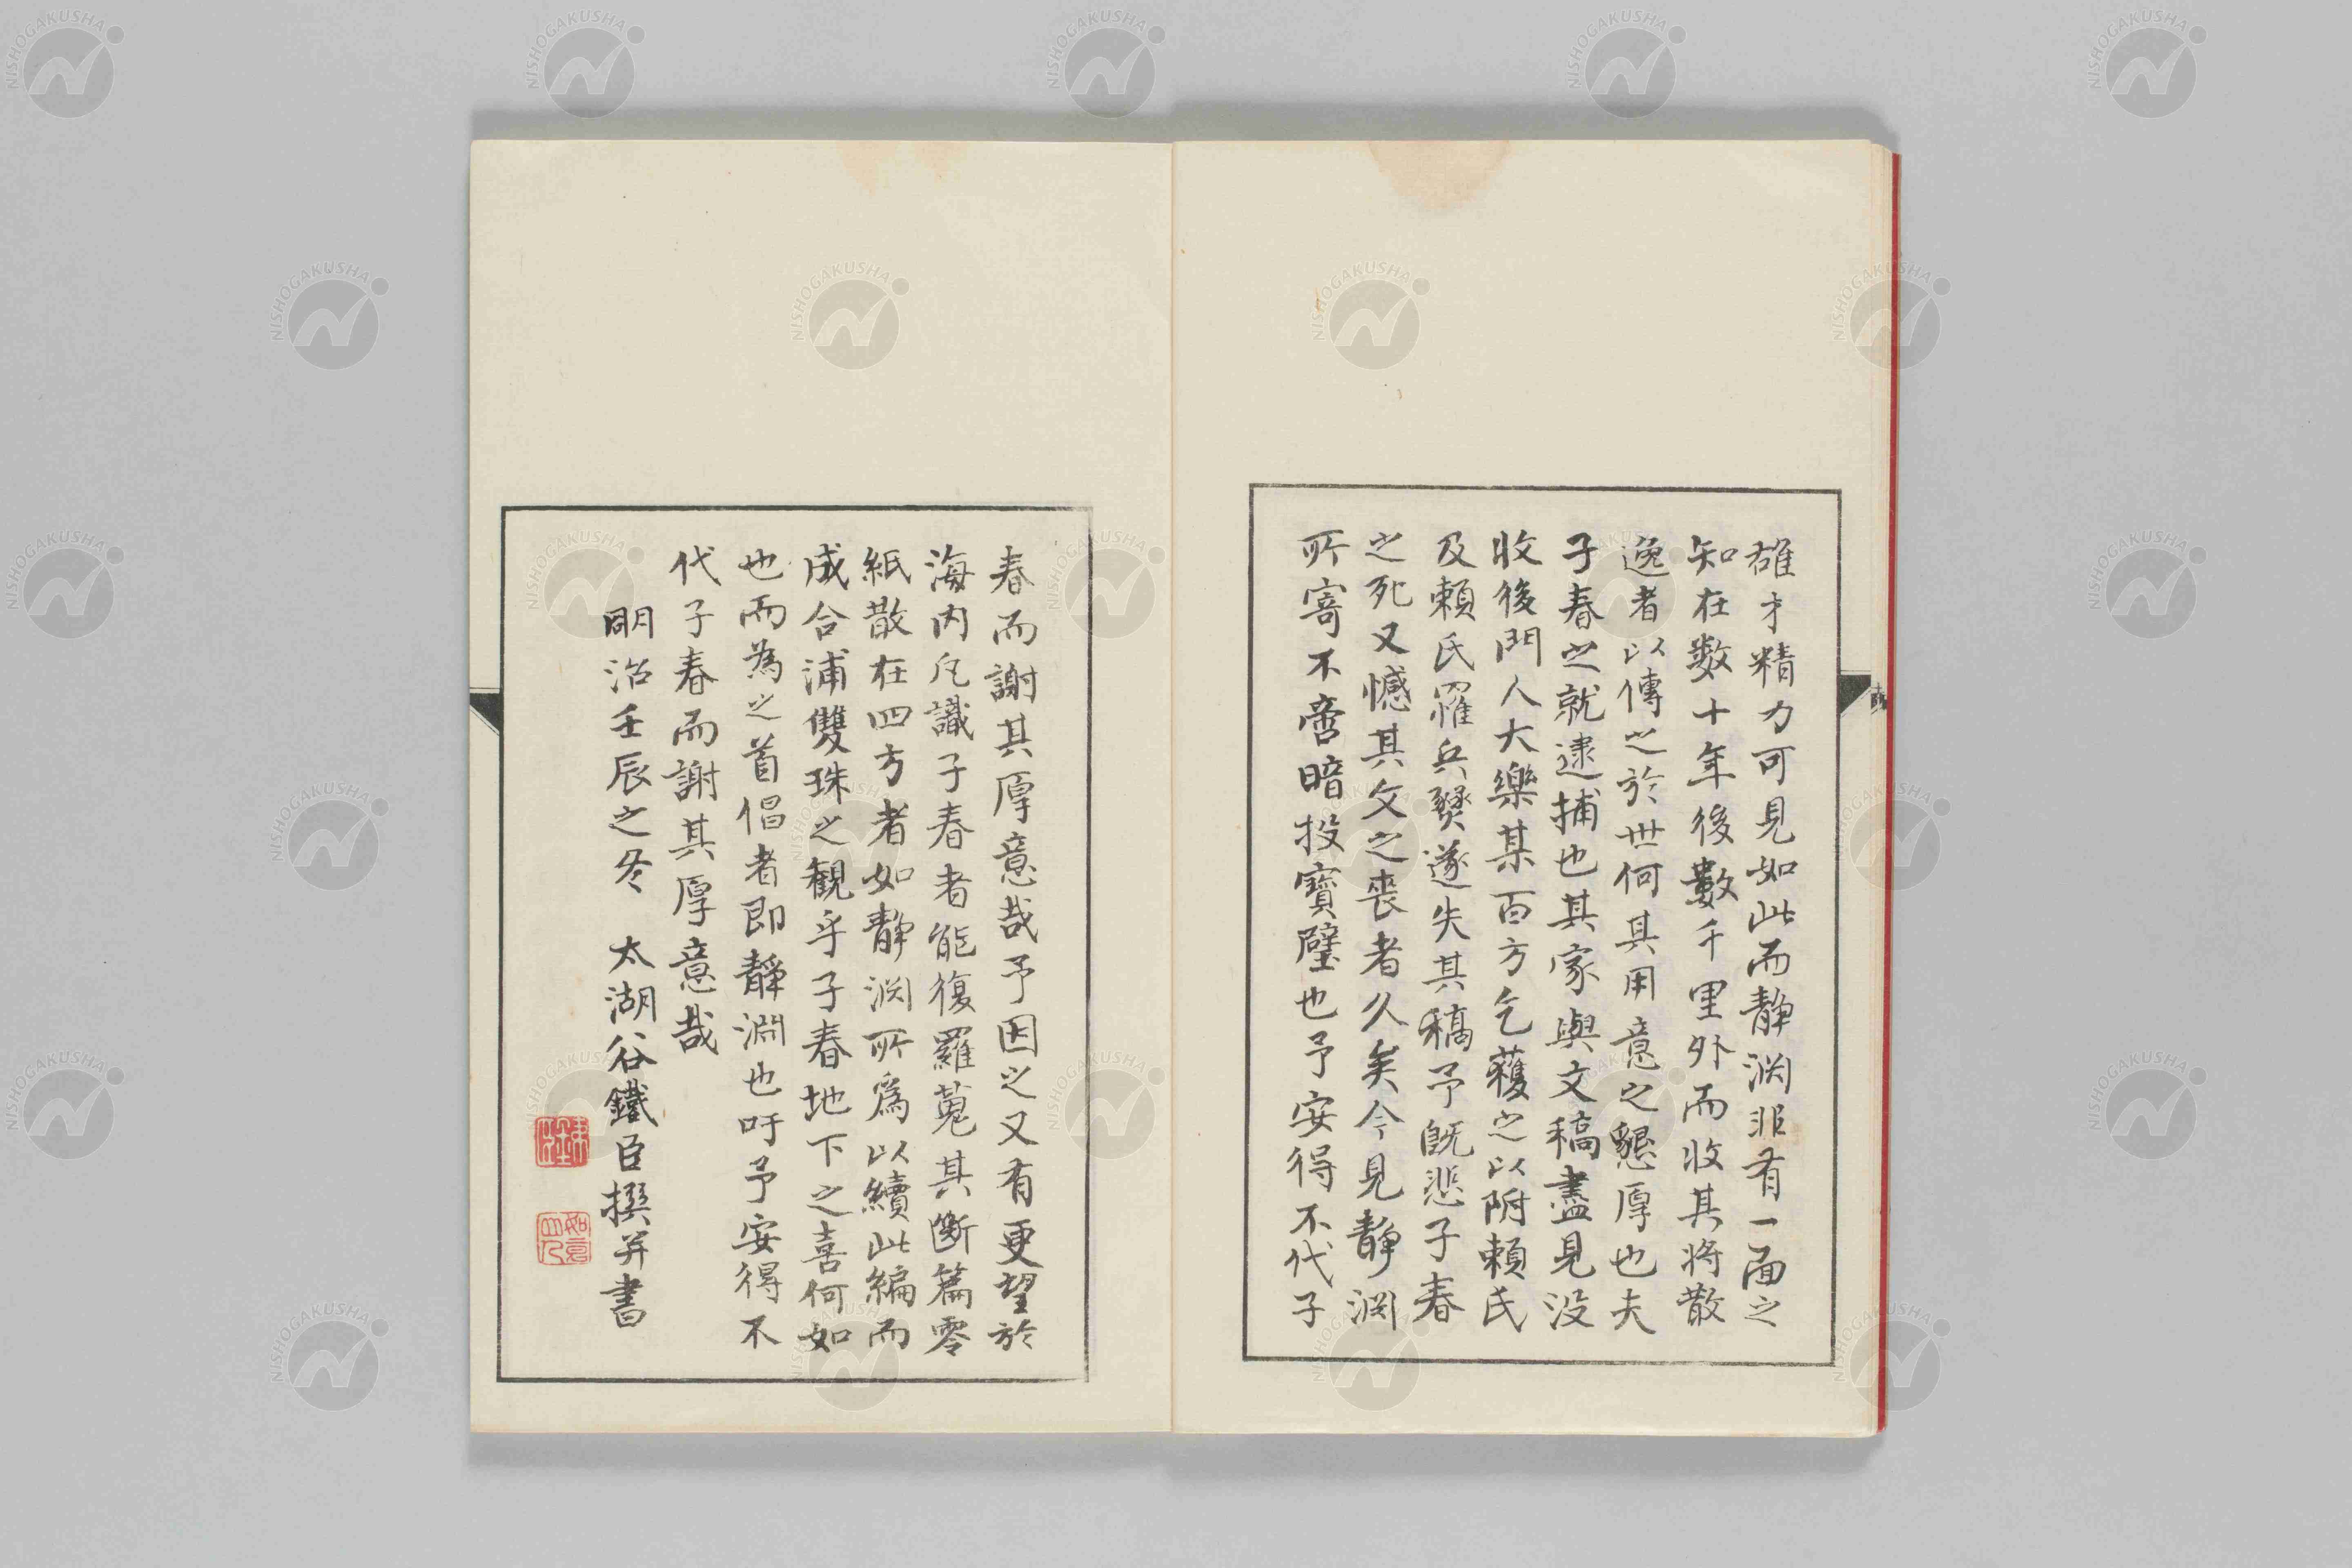 雄才精力可見如此而静渕非有一面之
知在数十年後數千里外而收其将散
逸者以傳之於世何其用意之懇厚也夫
子春之就逮捕也其家與文稿盡見没
收後門人大樂某百方乞獲之以附頼氏
及頼氏罹兵燹遂失其稿予既悲子春
之死又憾其文之丧者久矣今見静渕
所寄不啻暗投寶璧也予安得不代子
春而謝其厚意哉予因之又有更望於
海内凡識子春者能復羅蒐其断篇零
紙散在四方者如静渕所為以續此編而
成合浦雙珠之観乎子春地下之喜何如
也而為之首倡者即静淵也吁予安得不
代子春而謝其厚意哉
明治壬辰之冬　太湖谷鐵臣撰并書
NISHOGAKUSHA